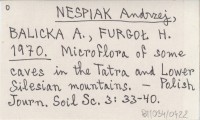 NESPIAK Andrzej,
BALICKA A., FURGOŁ H.
1970. Microflora of some
caves in the Tatra and Lower
Silesian mountains. — Polish
Journ. Soil Sc. 3: 33-40.